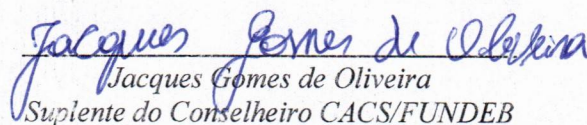 Jacques Gomes de Oliveira
Jacques Gomes de Oliveira
Suplente do Conselheiro CACS/FUNDEB